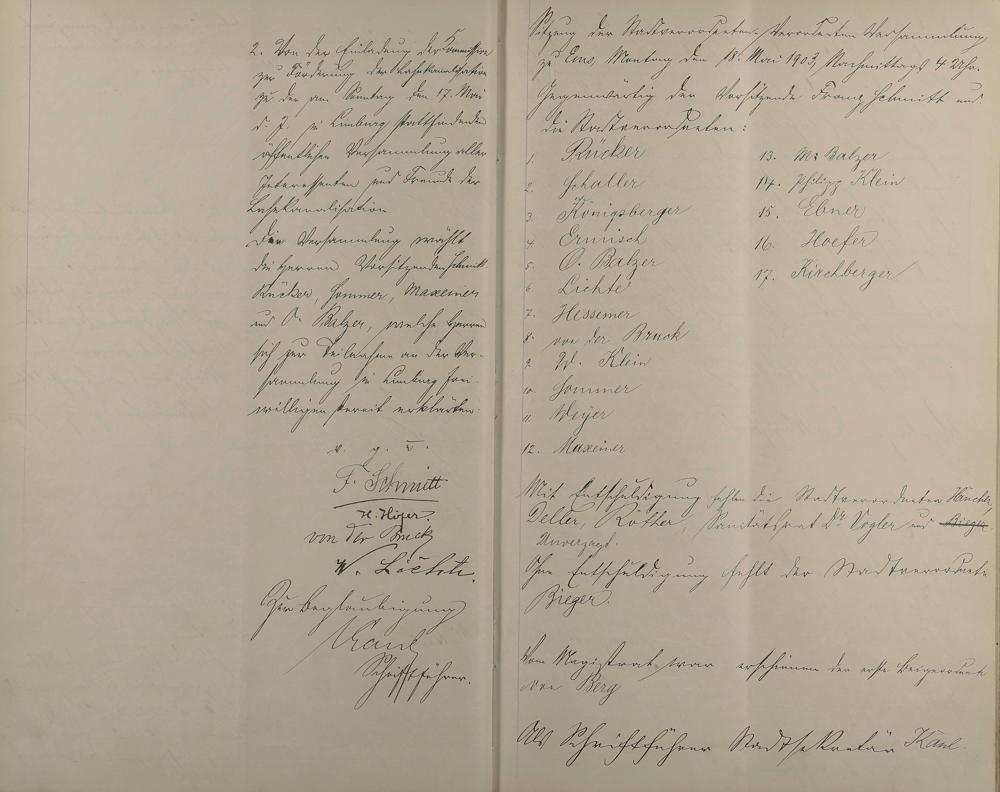 2. Von der Einladung der Kommission
zur Förderung der Lahnkanalisation
zu der am Sonntag den 17. Mai
d. J. in Limburg stattfindenden
öffentlichen Versammlung aller
Interessenten und Freunde der
Lahnkanalisation.
Die Versammlung wählt
die Herren Vorsitzenden Schmitt,
Rücker, Sommer, Maxeiner
und O. Balzer, welche Herren
sich zur Teilnahme an der Ver-
sammlung in Limburg frei-
willigen bereit erklärten.
v. g. u.
F. Schmitt
H. Höfer.
von der Bruck
W.
Zur Beglaubigung
Kaul
Schriftführer.
Sitzung der Stadtverordneten-Versammlung
zu Ems, Montag den 18. Mai 1903, Nachmittags 4 Uhr.
Gegenwärtig der Vorsitzende Franz Schmitt und
die Stadtverordneten:
1. Rücker
2. Schaller
3. Königsberger
4. Ermisch
5. O. Balzer
6. Lichte
7. Hessemer
8. von der Bruck
9. W. Klein
10. Sommer
11. Weyer
12. Maxeiner
13. M. Balzer
14. Philipp Klein
15. Ebner
16. Hoefer
17. Kirchberger
Mit Entschuldigung fehlen die Stadtverordneten
Deller, Röther, Sanitätsrat Dr. Vogler und Bieger
Unverzagt.
Ohne Entschuldigung fehlt der Stadtverordnete
Bieger.
Vom Magistrat war erschienen der erste Beigeordnete
von Berg
Als Schriftführer Stadtsekretär Kaul.